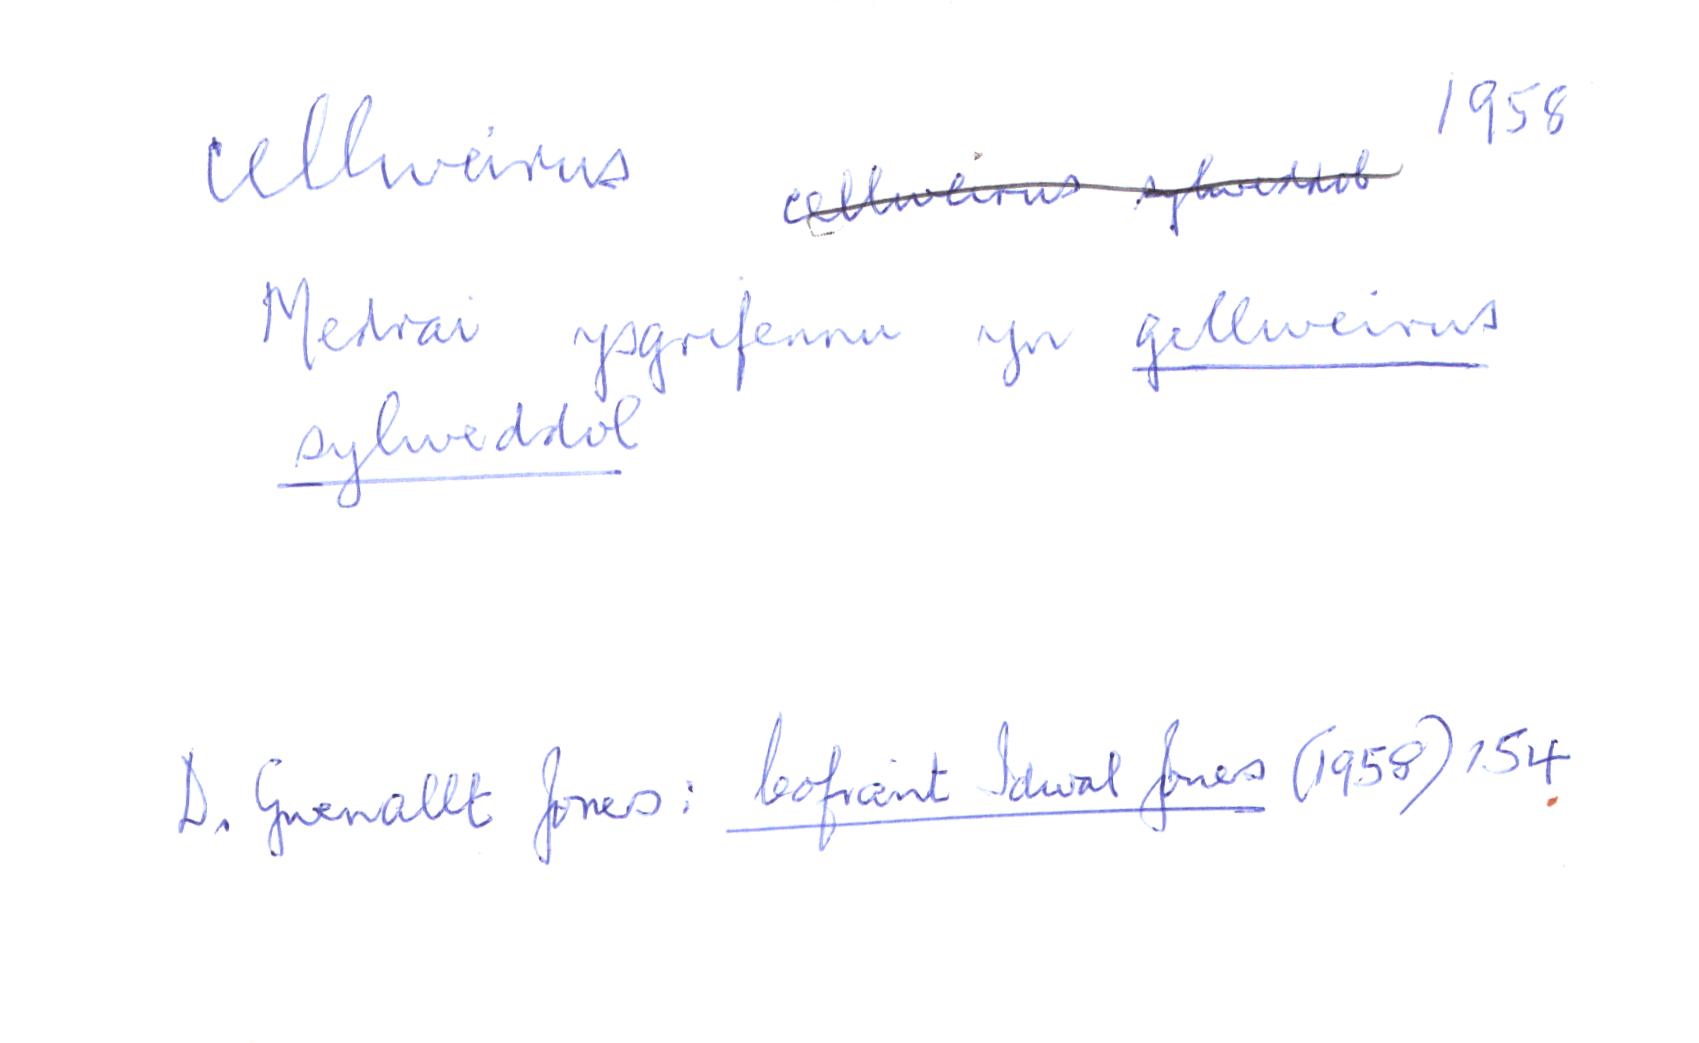 cellweirus
1958
cellweirus sylweddol
Medrai ysgrifennu yn gellweirus
sylweddol
D. Gwenallt Jones: Cofiant Idwal Jones (1958) 154.